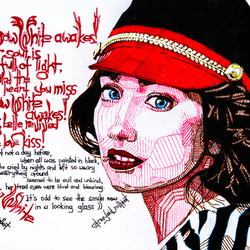 Snow White awakes!
soul is
full of light.
and the
heart you miss
Snow White
awakes!
belle revived
love kiss!
not a day before,
when all was painted in black,
she cried by nights and left so weary
everything around
seemed to be evil and unkind,
her tired eyes were blind and blearing.
It's odd to see the smile now
in a looking glass ))
White